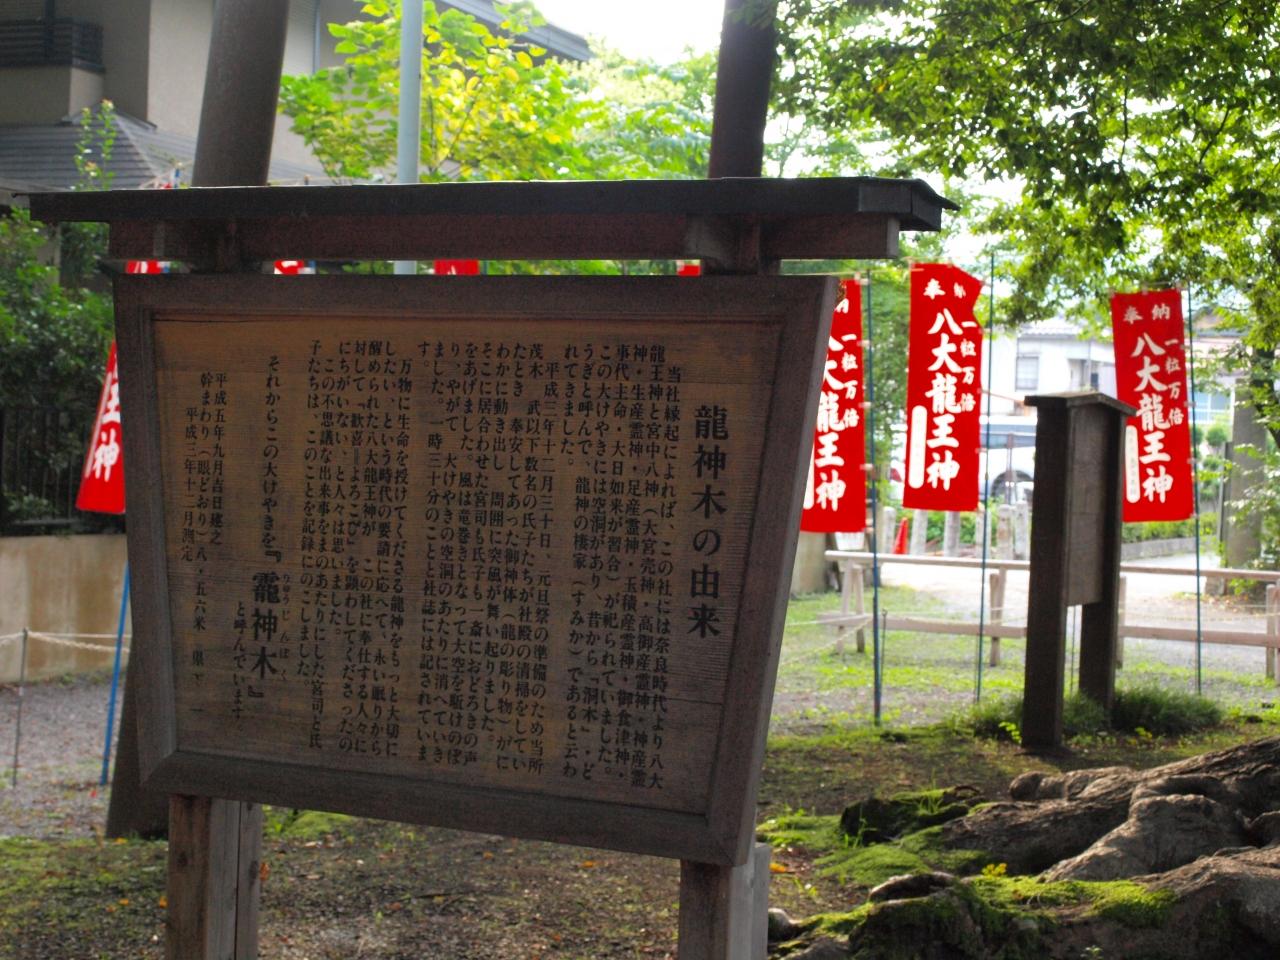 龍神木の由来
当社縁起によれば、この社には奈良時代より八大
龍王神と宮中八神（大宮売神・高御産霊神・神産霊
神・生産霊神・足産霊神・玉積産霊神・御食津神・
事代主命・大日如来が習合）が祀られていました。
この大けやきには空洞があり、昔から「洞木」・ど
うぎと呼んで、龍神の棲家（すみか）であると云わ
れてきました。
平成三年十二月三十日、元旦祭の準備のため当所
茂木 武以下数名の氏子たちが社殿の清掃をしてい
たとき、奉安してあった御神体（龍の彫り物）がに
わかに動き出し、周囲に突風が舞い起りました。
そこに居合わせた宮司も氏子も一斎におどろきの声
をあげました。風は竜巻きとなって大空を駈けのぼ
り、やがて、大けやきの空洞のあたりに消へていき
ました。一時三十分のことと社誌には記されていま
す。
万物に生命を授けてくださる龍神をもっと大切に
したい、という時代の要請に応へて、永い眠りから
醒められた八大龍王神が、この社に奉仕する人々に
対して「歓喜＝よろこび」を顕わしてくださったの
にちがいない、と人々は思いました。
この不思議な出来事をまのあたりにした宮司と氏
子たちは、このことを記録にのこしました。
それからこの大けやきを『靇神木』
りゅうじんぼく
と呼んでいます。
平成五年九月吉日建之
幹まわり（眼どおり）八・五六米 県下一
平成三年十二月測定
王神
一粒万倍
大龍王神
奉納
一粒万倍
八大龍王神
奉納
一粒万倍
八大龍王神